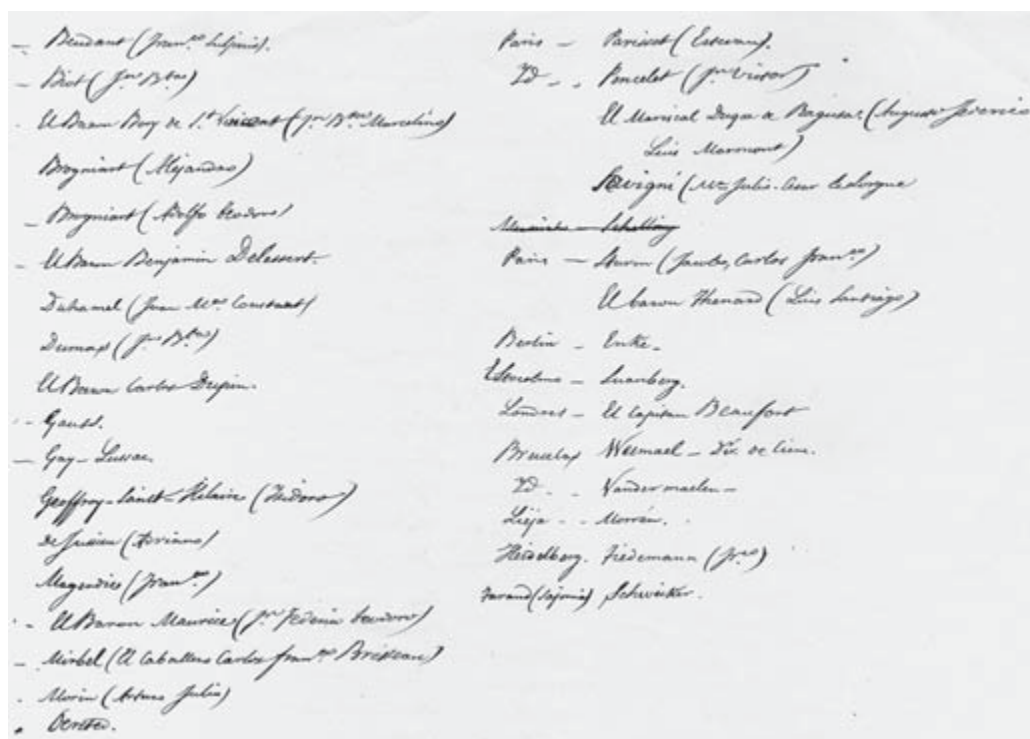 - Beudant (Fran.co Sulpicio).
- Biot (Jn. Bta)
- El Baron Bory de St. Vincent (Jn. Bta. Marcelino)
Brogniart (Alejandro)
- Brogniart (Adolfo Teodoro)
- El Baron Benjamin Delessert.
Duhamel (Juan Ma. Constant)
Dumas (Jn. Bta)
El Baron Carlos Dupin.
- Gauss.
- Gay-Lussac.
Geoffroy-Saint-Hilaire (Isidoro)
de Jussieu (Adriano)
Magendie (Fran.co)
- El Baron Maurice (Jn. Federico Teodoro)
- Mirbel (El Caballero Carlos Fran.co Brisseau)
- Morin (Arturo Julio)
- Oersted.
Paris - Pariset (Estevan).
Id - Poncelet (Jn. Victor)
El Mariscal Duque de Ragusa. (Augusto Federico
Luis Marmont)
Savigné (Ma. Julio-Cesar Lelorgne
- Schelling
Paris - Sturm (Jacobo, Carlos Fran.co)
El baron Thenard (Luis Santiago)
Berlin - Enke.
Estocolmo - Svanberg.
Londres - El Capitan Beaufort
Bruselas Wesmael -
Id. - Vandermaelen -
Lieja - Morren.
Heidelberg. Tiedemann
(Sajonia) Schweitzer.